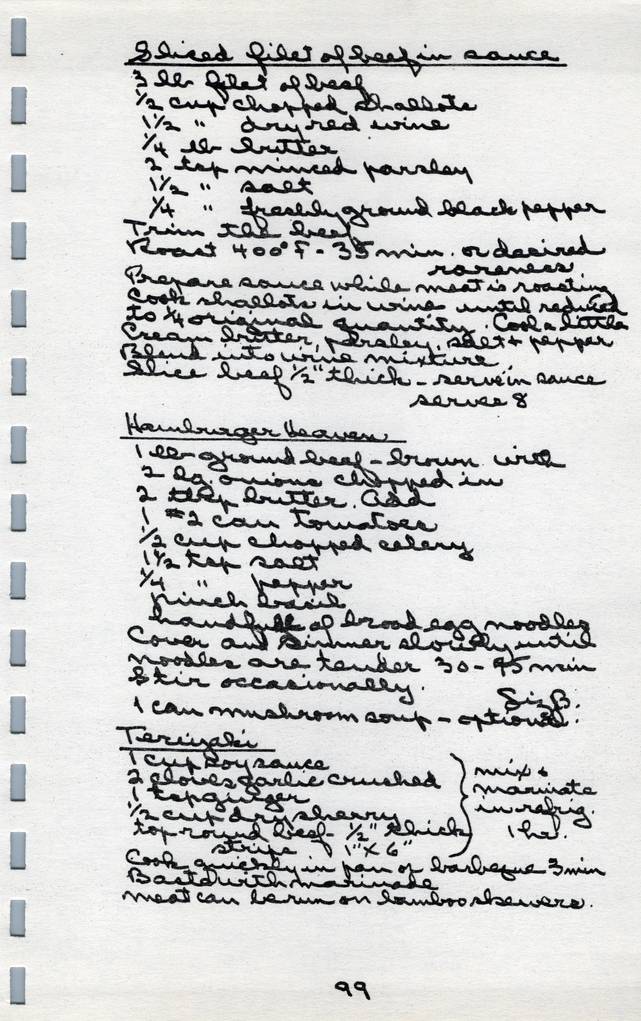 Sliced filet of beef in sauce
3 lb filet of beef
1/2 cup chopped shallots
1 1/2 " dry red wine
1/4 lb butter
2 tsp minced parsley
1 1/2 " salt
1/4 " freshly ground black pepper
Trim the beef
Roast 400° F - 35 min. or desired
rareness
Prepare sauce while meat is roasting
Cook shallots in wine until reduced
to 1/4 original quantity. Cool a little
Cream butter, parsley, salt + pepper
Blend into wine mixture.
Slice beef 1/2" thick - serve in sauce
serves 8
Hamburger Heaven
1 lb ground beef - brown with
2 lg onions chopped in
2 tbsp butter. Add
1 #2 can tomatoes
1/2 cup chopped celery
1 1/2 tsp salt
1/4 " pepper
pinch basil
handfull of broad egg noodles
Cover and simmer slowly until
noodles are tender 30-45 min
Stir occasionally.
Siz B.
1 can mushroom soup - optional.
Teriyaki
1 cup soy sauce
2 cloves garlic crushed
1 tsp ginger
1/2 cup dry sherry
top round beef 1/2" thick
strips 1" x 6"
mix &
marinate
in refrig.
1 hr.
Cook quickly in pan or barbeque 3 min
Baste with marinade
meat can be run on bamboo skewers.
99